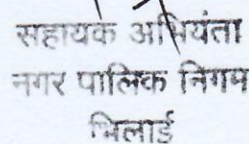 सहायक अभियंता
नगर पालिक निगम
भिलाई